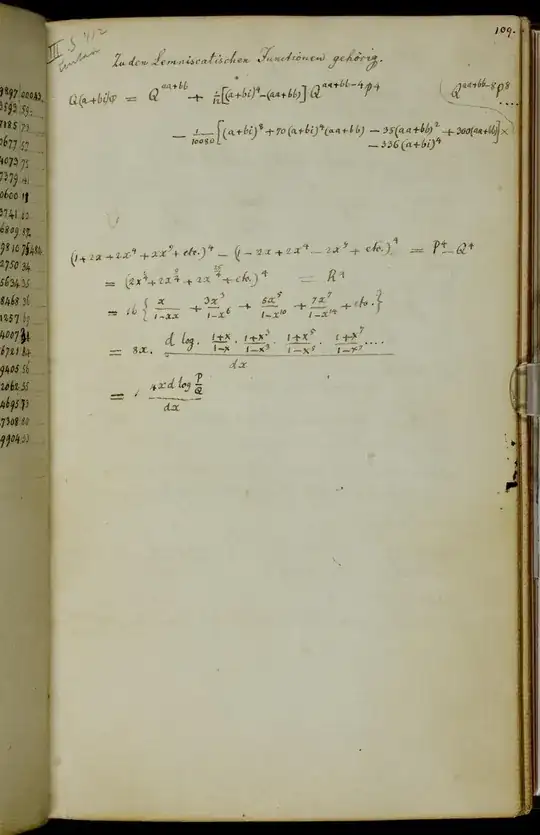 109.
III S 412
Zu den Lemniscatischen Functionen gehörig.
Q(a+bi)φ = Q^{aa+bb} + 1/12[(a+bi)^4-(aa+bb)] Q^{aa+bb-4} P^4 Q^{aa+bb-8} P^8 ....
- 1/10080 [(a+bi)^8 + 70(a+bi)^4(aa+bb) - 35(aa+bb)^2 + 300(aa+bb)] ×
- 336(a+bi)^4
(1+2x+2x^4+2x^9+etc.)^4 - (1-2x+2x^4-2x^9+etc.)^4 = P^4 - Q^4
= (2x^{1/4}+2x^{9/4}+2x^{25/4}+etc.)^4 = R^4
= 16 { x/(1-xx) + 3x^3/(1-x^6) + 5x^5/(1-x^10) + 7x^7/(1-x^14) + etc. }
= 8x. d log. (1+x)/(1-x) . (1+x^3)/(1-x^3) . (1+x^5)/(1-x^5) . (1+x^7)/(1-x^7) ....
dx
= 4x d log P/Q
dx
9897
3593 59
7185 73
0677 57
4073 75
7379 41
0600
3741 10
6809
9810
2750 34
5634 35
8468 36
1257
4007
6721 84
9405 56
2062 35
4695 73
7308 80
9904